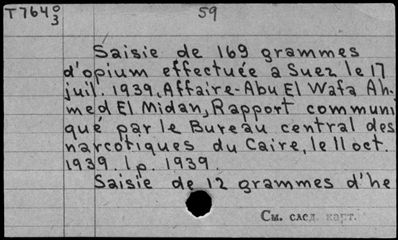 T764 0/3 59
Saisie de 169 grammes
d'opium effectuée a Suez le 17
juil. 1939, Affaire-Abu El Wafa Ah-
med El Midan, Rapport communi
qué par le Bureau central des
narcotiques du Caire, le 11 oct.
1939. 1p. 1939.
Saisie de 12 grammes d'he
См. след. карт.